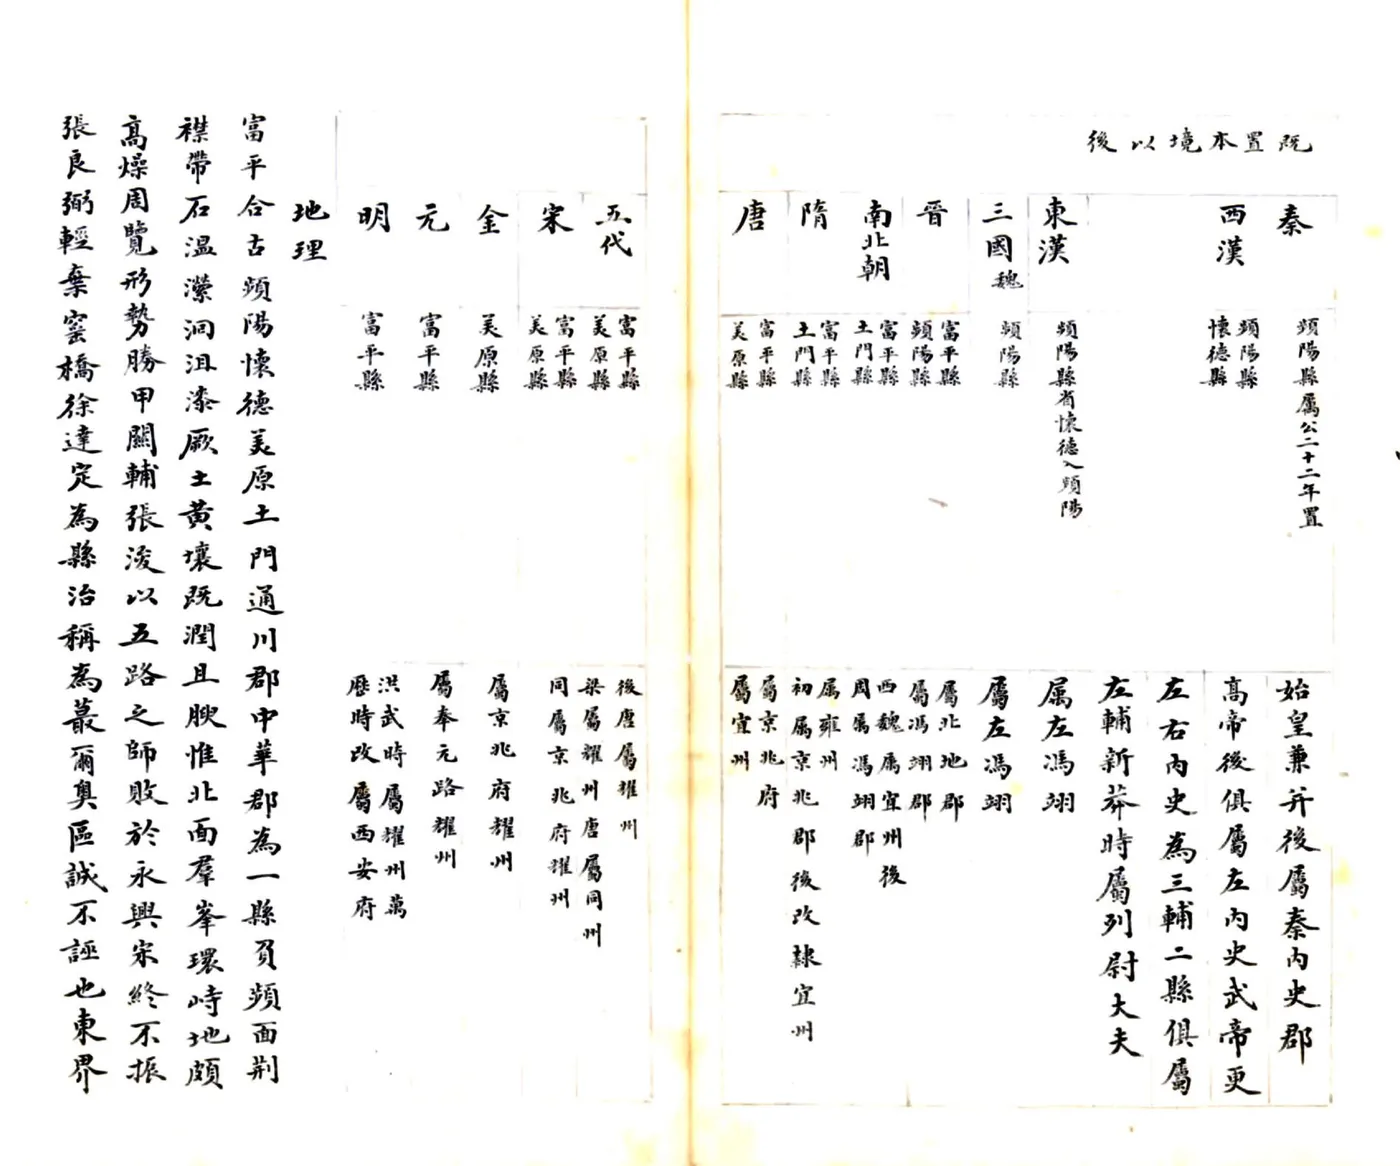 既置本境以後
秦
頻陽縣厲公二十二年置
始皇兼并後屬秦內史郡
西漢
頻陽縣
懷德縣
高帝後俱屬左內史武帝更
左右內史為三輔二縣俱屬
左輔新莽時屬列尉大夫
東漢
頻陽縣省懷德入頻陽
属左馮翊
三國魏
頻陽縣
屬左馮翊
晉
富平縣
頻陽縣
屬北地郡
屬馮翊郡
南北朝
富平縣
土門縣
西魏属宜州後
周属馮翊郡
隋
富平縣
土門縣
属雍州
初属京兆郡後改隸宜州
唐
富平縣
美原縣
屬京兆府
屬宜州
五代
富平縣
美原縣
後唐屬耀州
梁屬耀州唐屬同州
宋
富平縣
美原縣
同屬京兆府耀州
金
美原縣
屬京兆府耀州
元
富平縣
屬奉元路耀州
明
富平縣
洪武時屬耀州萬
歷時改屬西安府
地理
富平合古頻陽懷德美原土門通川郡中華郡為一縣負頻面荆
襟帶石温灤洞沮漆厥土黄壤既潤且腴惟北面羣峯環峙地頗
高燥周覽形勢勝甲關輔張浚以五路之師敗於永興宋終不振
張良弼輕棄窑橋徐達定為縣治稱為蕞爾奧區誠不誣也東界